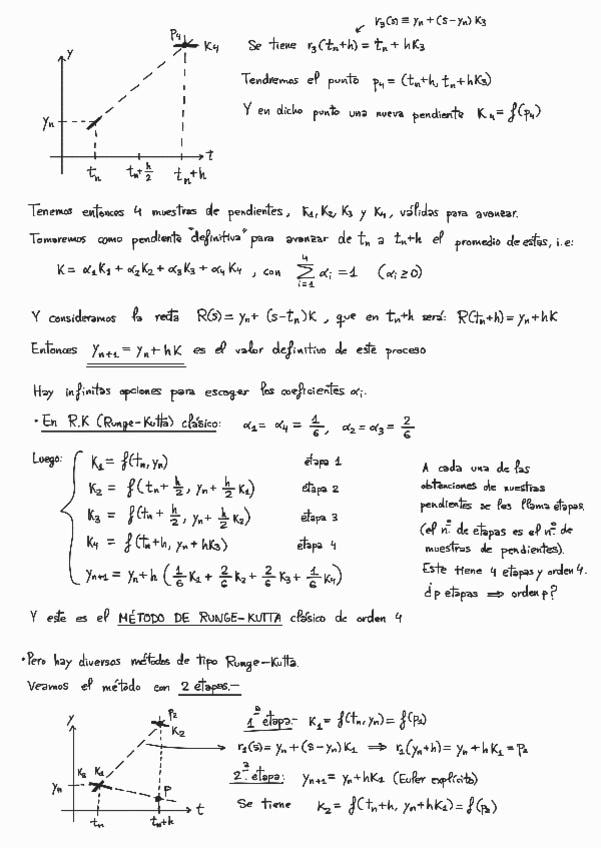 r₃(s) ≡ yn + (s-yn) K₃
Se tiene r₃(tn+h) = tn + hK₃
Tendremos el punto p₄ = (tn+h, tn+hK₃)
Y en dicho punto una nueva pendiente K₄ = f(p₄)
P₄
K₄
y
yn
t
tn
tn+h/2
tn+h
Tenemos entonces 4 muestras de pendientes, K₁, K₂, K₃ y K₄, válidas para avanzar.
Tomaremos como pendiente "definitiva" para avanzar de tn a tn+h el promedio de estas, i.e:
K = α₁K₁ + α₂K₂ + α₃K₃ + α₄K₄, con ∑_{i=1}^{4} αi = 1 (αi ≥ 0)
Y consideramos la recta R(s) = yn + (s-tn)K, que en tn+h será: R(tn+h) = yn + hK
Entonces yn+1 = yn + hK es el valor definitivo de este proceso
Hay infinitas opciones para escoger los coeficientes αi.
• En R.K (Runge-Kutta) clásico: α₁ = α₄ = 1/6, α₂ = α₃ = 2/6
Luego:
K₁ = f(tn, yn) etapa 1
K₂ = f(tn + h/2, yn + h/2 K₁) etapa 2
K₃ = f(tn + h/2, yn + h/2 K₂) etapa 3
K₄ = f(tn+h, yn+hK₃) etapa 4
yn+1 = yn + h (1/6 K₁ + 2/6 K₂ + 2/6 K₃ + 1/6 K₄)
A cada una de las
obtenciones de nuestras
pendientes se les llama etapas,
(el nº de etapas es el nº de
muestras de pendientes).
Este tiene 4 etapas y orden 4.
¿p etapas ⟹ orden p?
Y este es el MÉTODO DE RUNGE-KUTTA clásico de orden 4
• Pero hay diversos métodos de tipo Runge-Kutta.
Veamos el método con 2 etapas.-
y
P₂
K₂
K₁
yn
P
t
tn
tn+h
1ª etapa.- K₁ = f(tn, yn) = f(p₁)
r₁(s) = yn + (s-yn) K₁ ⟹ r₁(yn+h) = yn + hK₁ = P₂
2ª etapa: yn+1 = yn + hK₁ (Euler explícito)
Se tiene K₂ = f(tn+h, yn+hK₁) = f(p₂)